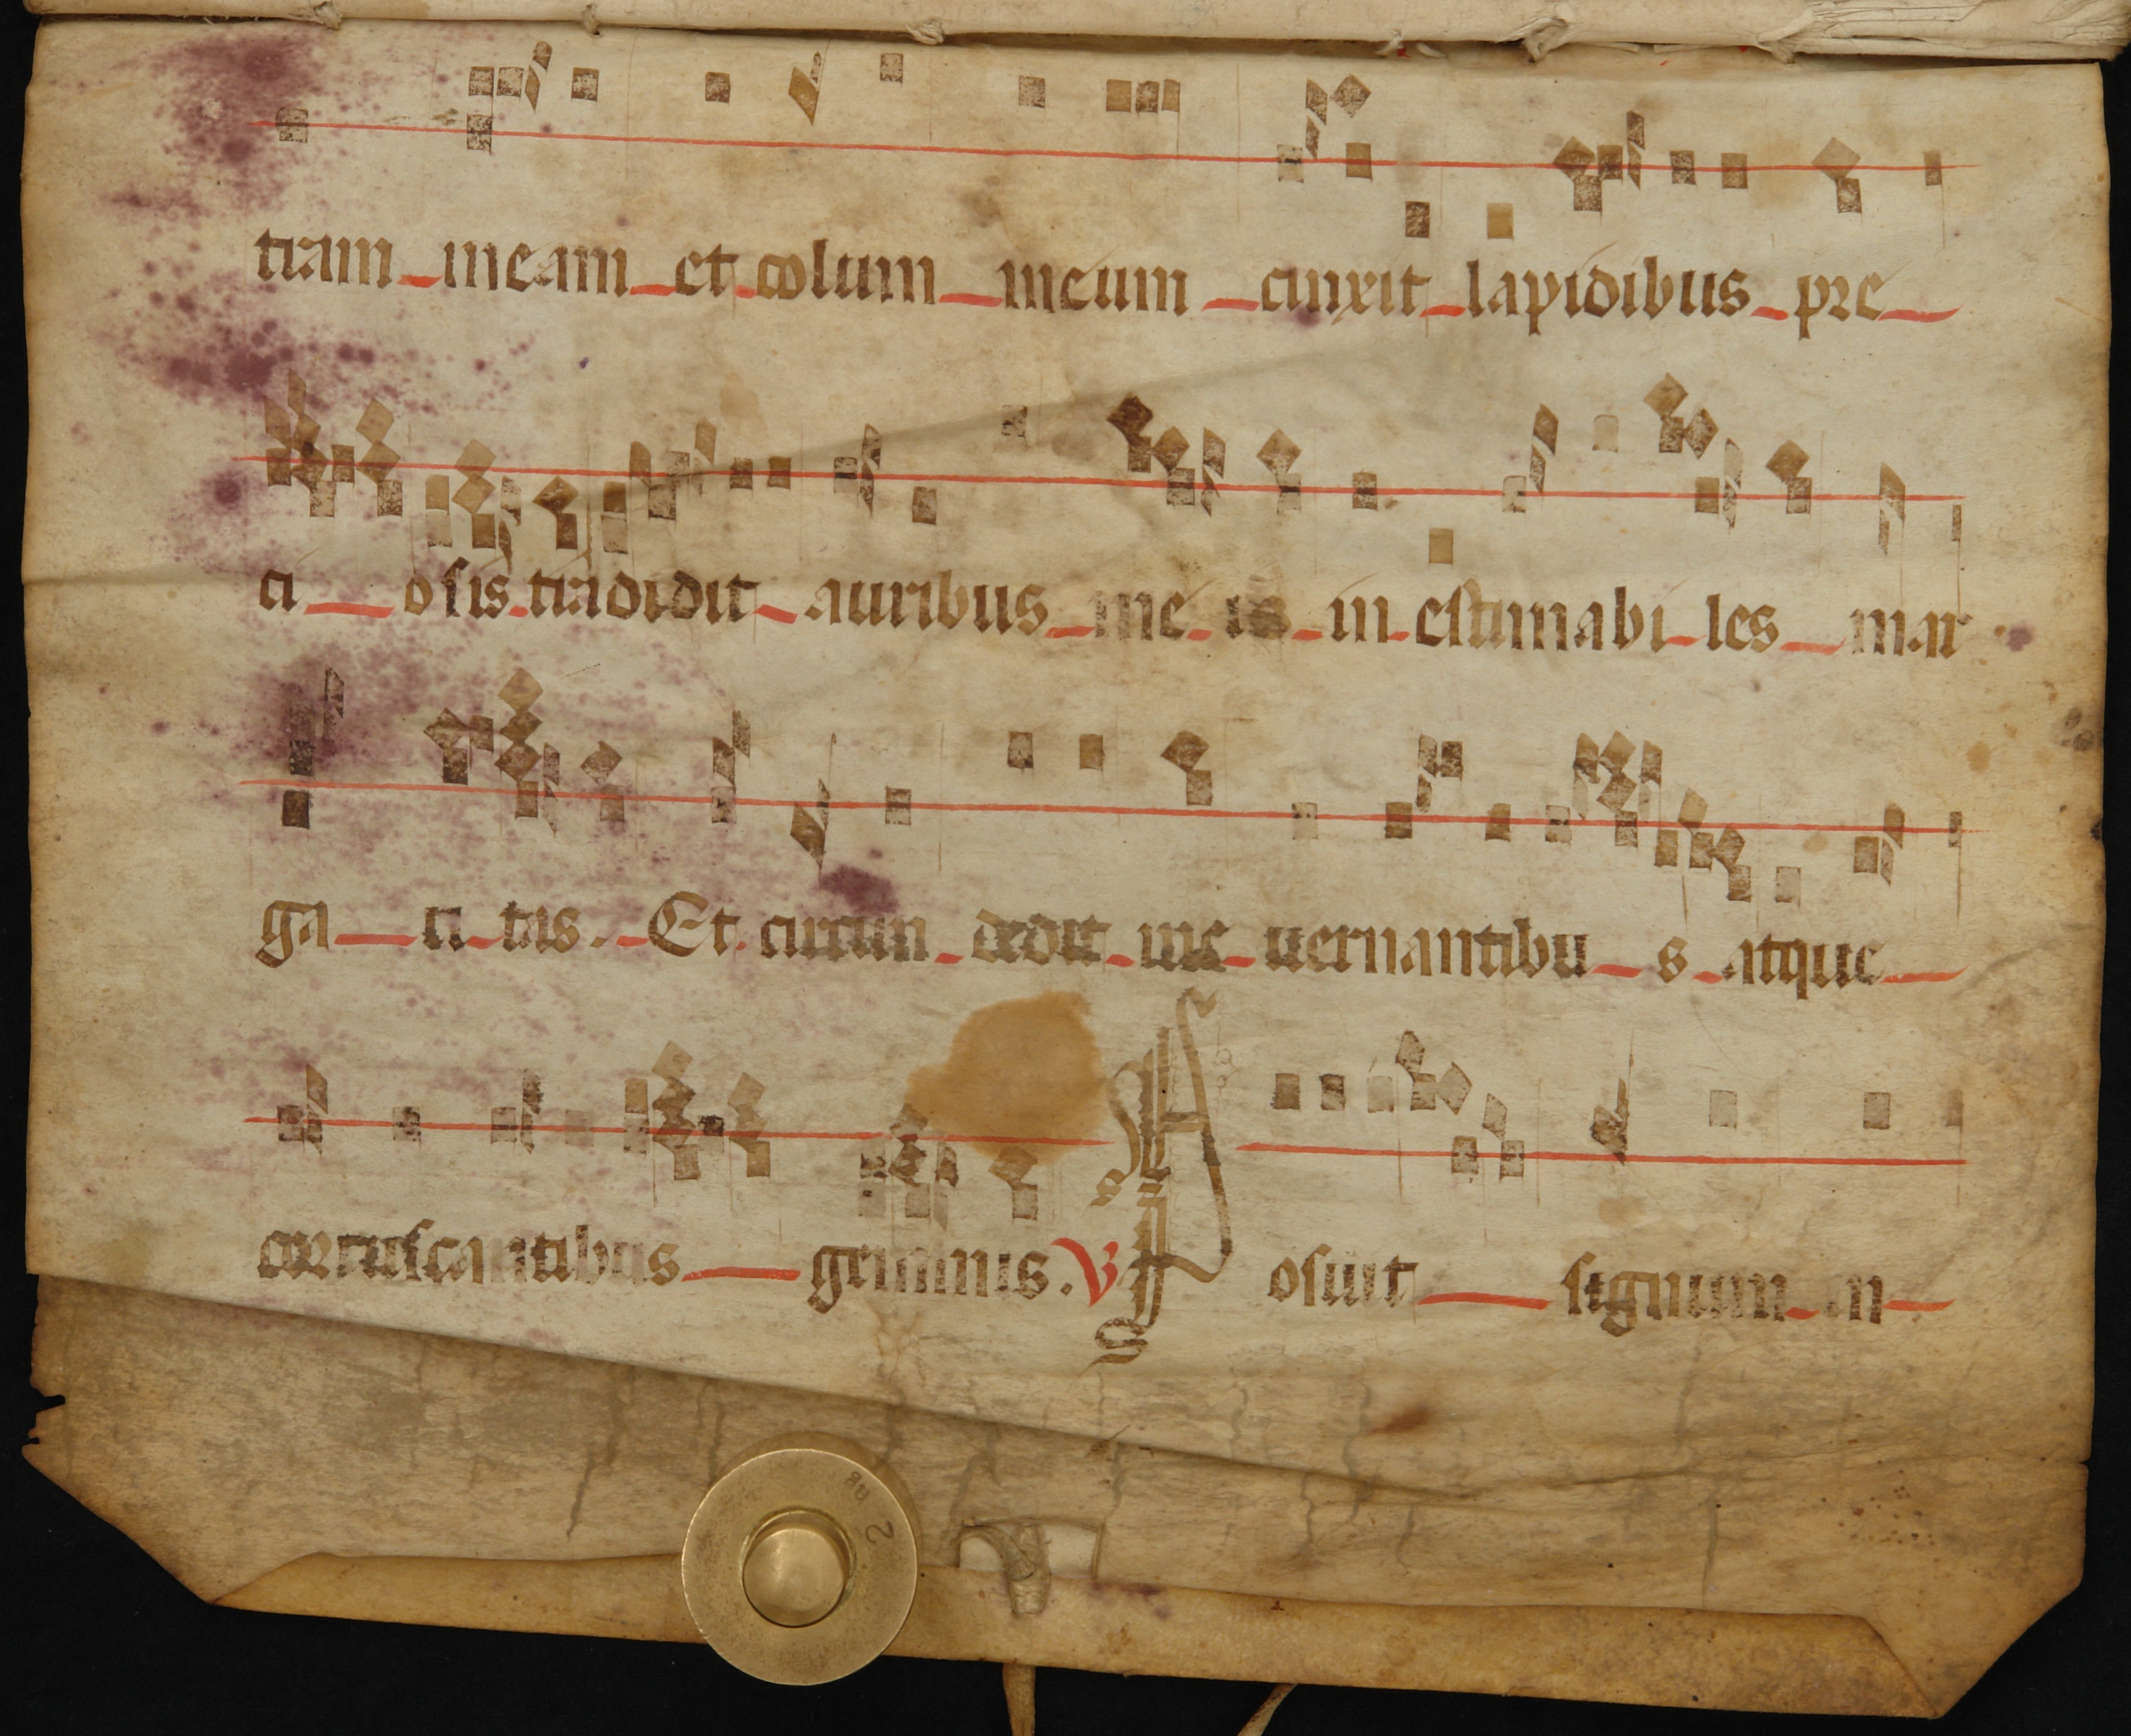 tram meam et colum meum cinxit lapidibus pre
ci osis tradidit auribus me is in estimabi les mar
ga ri tas. Et circun dedit me uernantibu s atque
corruscantibus gemmis. V Posuit signum in